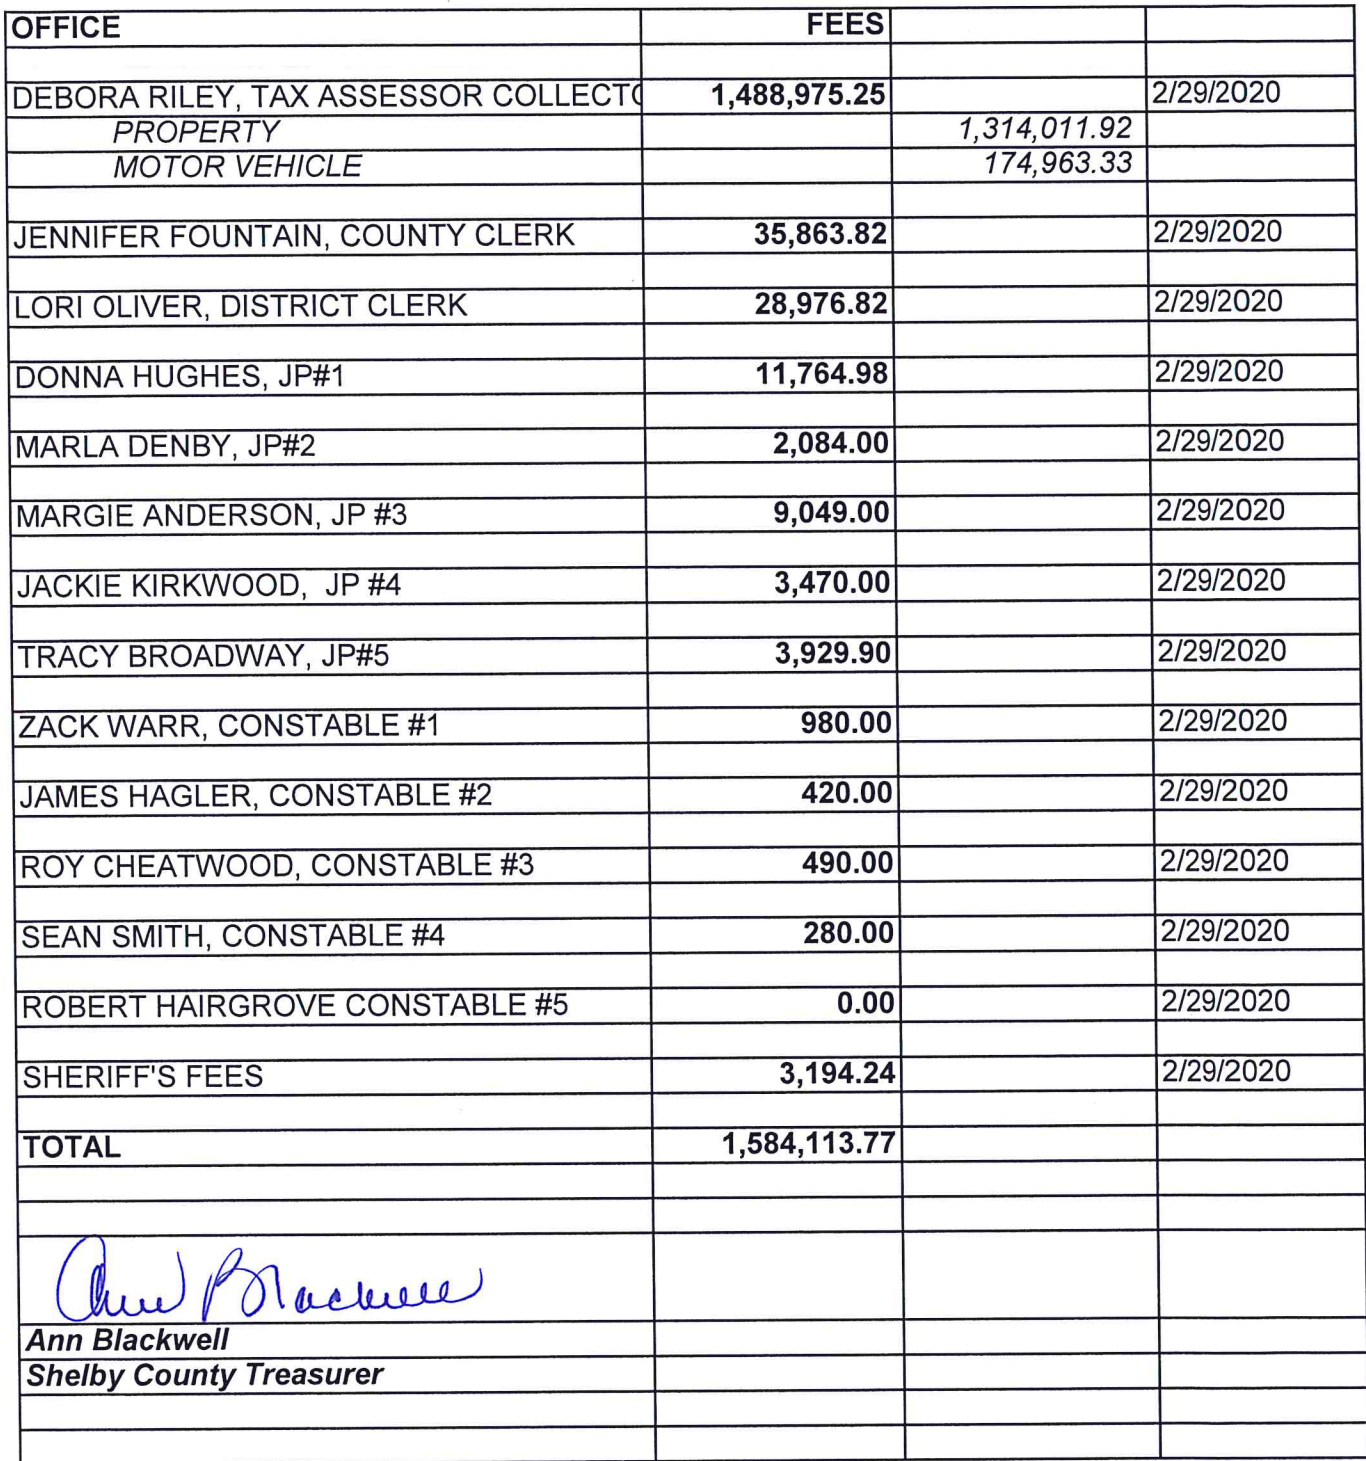 OFFICE FEES
DEBORA RILEY, TAX ASSESSOR COLLECTO 1,488,975.25 2/29/2020
PROPERTY 1,314,011.92
MOTOR VEHICLE 174,963.33
JENNIFER FOUNTAIN, COUNTY CLERK 35,863.82 2/29/2020
LORI OLIVER, DISTRICT CLERK 28,976.82 2/29/2020
DONNA HUGHES, JP#1 11,764.98 2/29/2020
MARLA DENBY, JP#2 2,084.00 2/29/2020
MARGIE ANDERSON, JP #3 9,049.00 2/29/2020
JACKIE KIRKWOOD, JP #4 3,470.00 2/29/2020
TRACY BROADWAY, JP#5 3,929.90 2/29/2020
ZACK WARR, CONSTABLE #1 980.00 2/29/2020
JAMES HAGLER, CONSTABLE #2 420.00 2/29/2020
ROY CHEATWOOD, CONSTABLE #3 490.00 2/29/2020
SEAN SMITH, CONSTABLE #4 280.00 2/29/2020
ROBERT HAIRGROVE CONSTABLE #5 0.00 2/29/2020
SHERIFF'S FEES 3,194.24 2/29/2020
TOTAL 1,584,113.77
Ann Blackwell
Ann Blackwell
Shelby County Treasurer